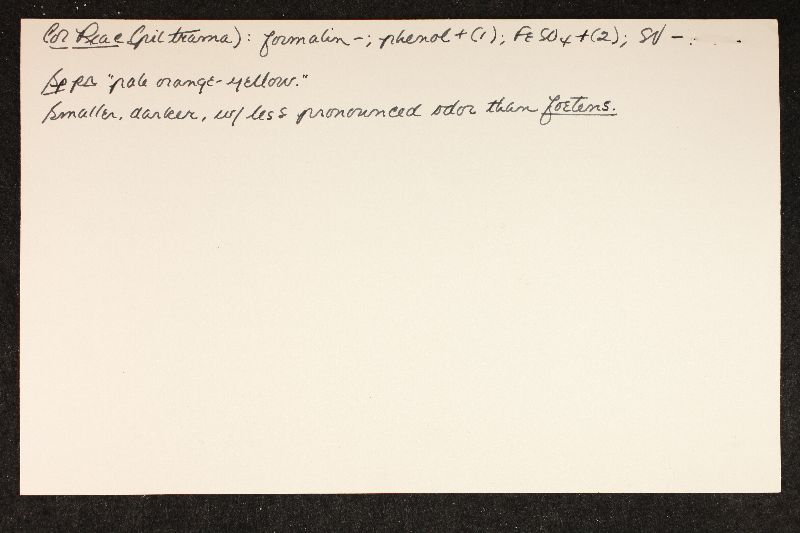 Col Reac (pil trama): formalin -; phenol + (1); FeSO4 + (2); SV -.
Sp pr "pale orange-yellow."
Smaller, darker, w/ less pronounced odor than foetens.